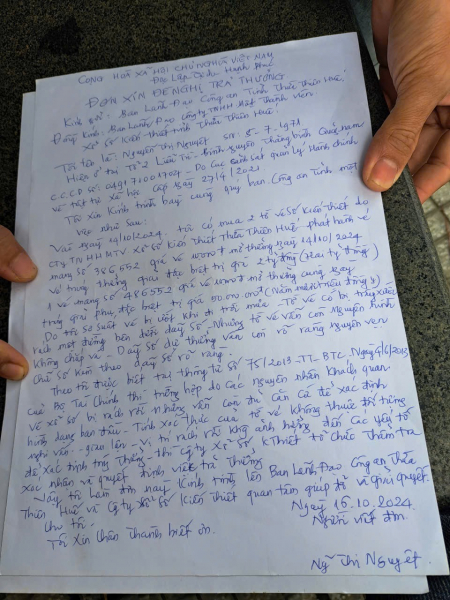 CỘNG HOÀ XÃ HỘI CHỦ NGHĨA VIỆT NAM
Độc Lập Tự do Hạnh Phúc
ĐƠN XIN ĐỀ NGHỊ TRẢ THƯỞNG
Kính gửi: Ban Lãnh Đạo Công an Tỉnh Thừa Thiên Huế.
Đồng kính: Ban Lãnh Đạo Công ty TNHH Một Thành Viên
Xổ Số Kiến Thiết tỉnh Thừa Thiên Huế.
Tôi tên là: Nguyễn Thị Nguyệt SN: 8-7-1971
Hiện ở tại Tổ 2 Liễu Trì - Bình Nguyên Thăng Bình Quảng Nam
C.C.C.D số: Do Cục Cảnh Sát quản lý Hành chính
về trật tự xã hội Cấp ngày 27/4/2021
Tôi xin Kính trình bày cùng quý ban. Công an Tỉnh một
việc như Sau:
Vào ngày 14/10/2024. tôi có mua 2 tờ vé Số Kiến Thiết do
CTy TNHH MTV Xổ Số Kiến Thiết Thừa Thiên Huế phát hành vé
mang số 386552 giá vé 10.000đ mở thưởng ngày 14/10/2024
vé trúng thưởng giải đặc biệt trị giá 2 tỷ đồng (Hai tỷ đồng)
1 vé mang số 486552 giá vé 10.000đ mở thưởng cùng ngày
trúng giải phụ đặc biệt trị giá 50.000.000đ (Năm mươi triệu đồng)
Do tôi sơ suất vé bị ướt khi đi trời mưa. Tờ vé có bị
rách một đường bên dưới dãy số. Nhưng tờ vé vẫn còn nguyên hình
không chắp vá - Dãy số dự thưởng vẫn còn rõ ràng nguyên vẹn
Chữ số kèm theo dãy số rõ ràng.
Theo tôi được biết tại thông tư số 75/2013-TT-BTC. Ngày 4/6/2013
của Bộ Tài Chính thì trường hợp do các nguyên nhân khách quan
vé xổ số bị rách rời nhưng vẫn còn đủ căn cứ để xác định
hình dạng ban đầu - Tính xác thực của tờ vé không thuộc đối tượng
nghi vấn - gian lận - Vị trí rách rời không ảnh hưởng đến các yếu tố
để xác định trúng Thưởng - thì Công ty Xổ Số, K Thiết tổ Chức Thẩm tra
xác nhận và quyết định việc trả Thưởng
Vậy tôi làm đơn này kính trình lên Ban Lãnh Đạo Công an Thừa
Thiên Huế và Công ty Xổ Số Kiến Thiết quan tâm giúp đỡ và giải quyết.
cho tôi.
Ngày 16.10.2024
Tôi Xin Chân Thành biết ơn.
Người viết đơn.
Ng Thị Nguyệt.